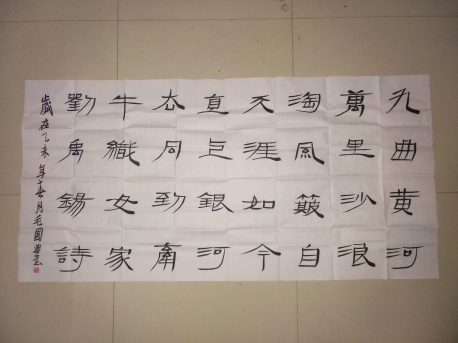 九曲黄河
萬里沙浪
淘風簸自
天涯如今
直上銀河
去同到牽
牛織女家
劉禹錫詩
歲在乙未年春月毛國典書